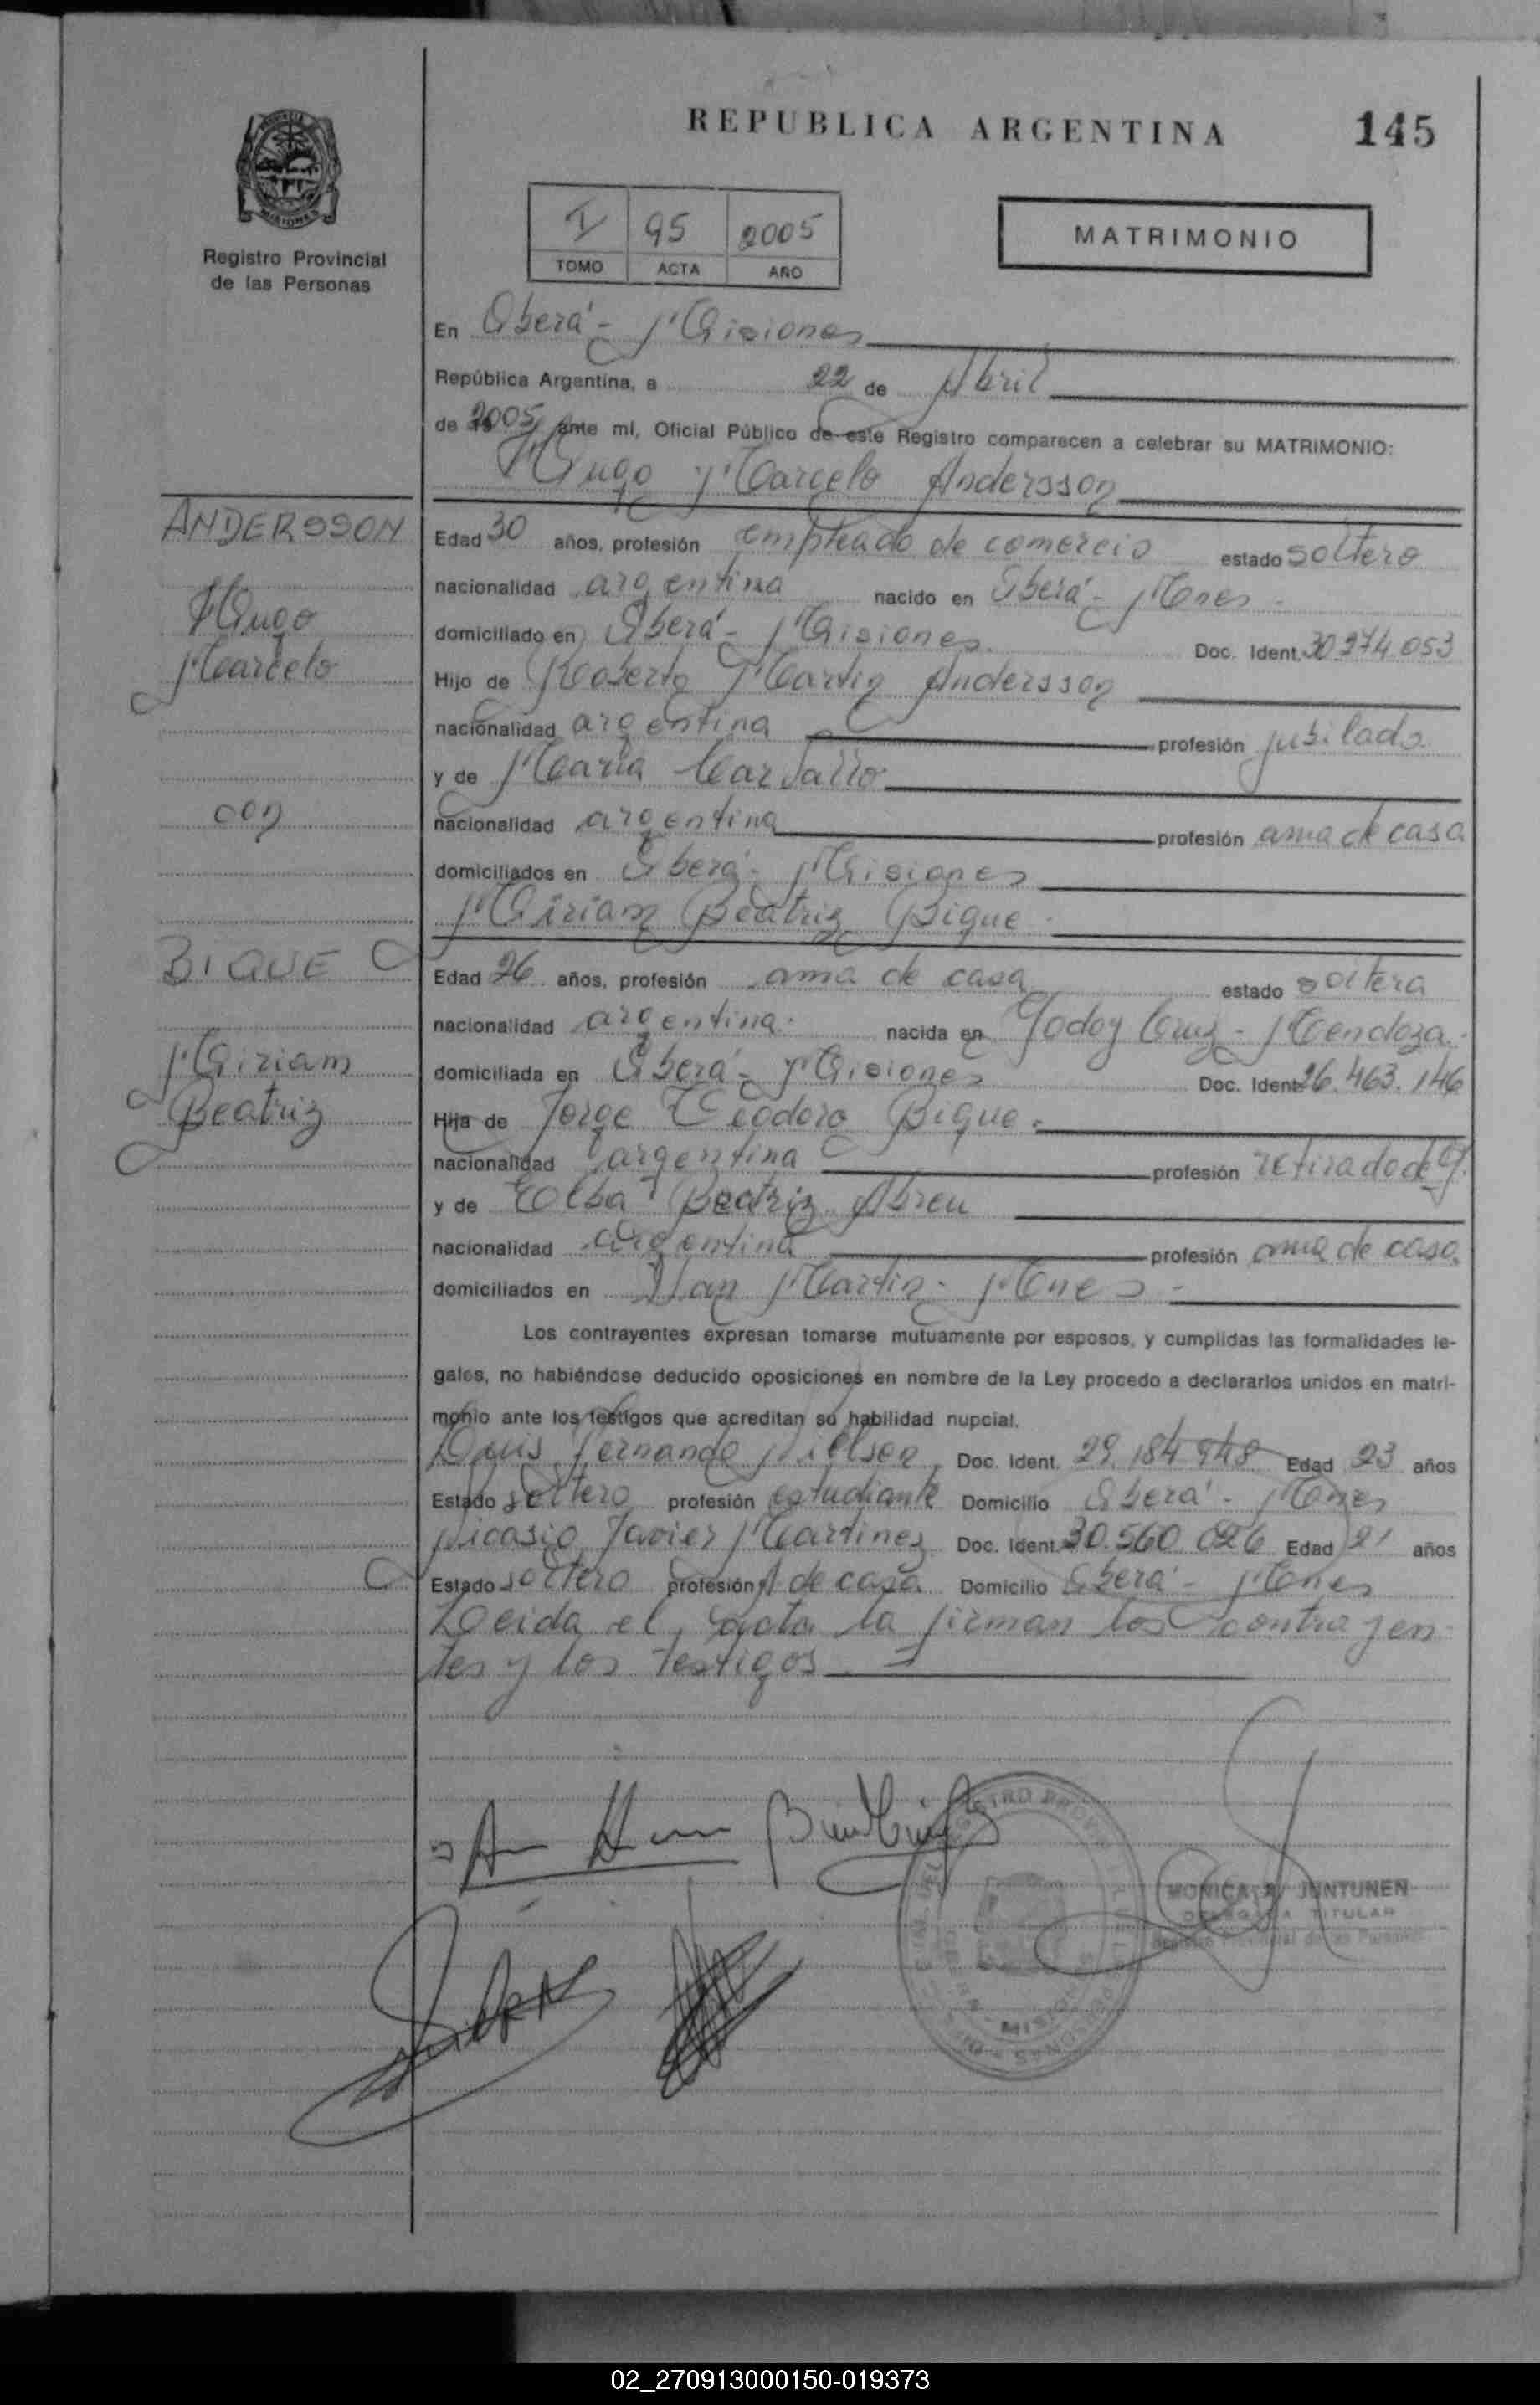 REPUBLICA ARGENTINA
145
MISIONES
Registro Provincial
de las Personas
I 95 2005
TOMO ACTA AÑO
MATRIMONIO
En Oberá - Misiones
República Argentina, a 22 de Abril
de 2005 ante mí, Oficial Público de este Registro comparecen a celebrar su MATRIMONIO:
Hugo Marcelo Andersson
ANDERSSON
Hugo
Marcelo
con
BIQUE
Miriam
Beatriz
Edad 30 años, profesión empleado de comercio estado soltero
nacionalidad argentina nacido en Oberá - Mnes -
domiciliado en Oberá - Misiones. Doc. Ident. 30.274.053
Hijo de Roberto Martin Andersson
nacionalidad argentina profesión jubilado
y de Maria
nacionalidad argentina profesión ama de casa
domiciliados en Oberá - Misiones
Miriam Beatriz Bique -
Edad 26 años, profesión ama de casa estado soltera
nacionalidad argentina. nacida en Godoy Cruz - Mendoza.
domiciliada en Oberá - Misiones Doc. Ident. 26.463.146
Hija de Jorge Teodoro Bique -
nacionalidad argentina profesión retirado de G.
y de Elba Beatriz Abreu
nacionalidad argentina profesión ama de casa.
domiciliados en San Martin - Mnes -
Los contrayentes expresan tomarse mutuamente por esposos, y cumplidas las formalidades le-
gales, no habiéndose deducido oposiciones en nombre de la Ley procedo a declararlos unidos en matri-
monio ante los testigos que acreditan su habilidad nupcial.
Luis Fernando Nielsen Doc. Ident. 29.184.948 Edad 23 años
Estado soltero profesión estudiante Domicilio Oberá - Mnes
Nicasio Javier Martinez Doc. Ident. 30.560.026 Edad 21 años
Estado soltero profesión A de casa Domicilio Oberá - Mnes
Leida el acta la firman los contrayen-
tes y los testigos. =
MONICA JUNTUNEN
TITULAR
Registro Provincial de las Personas
02_270913000150-019373